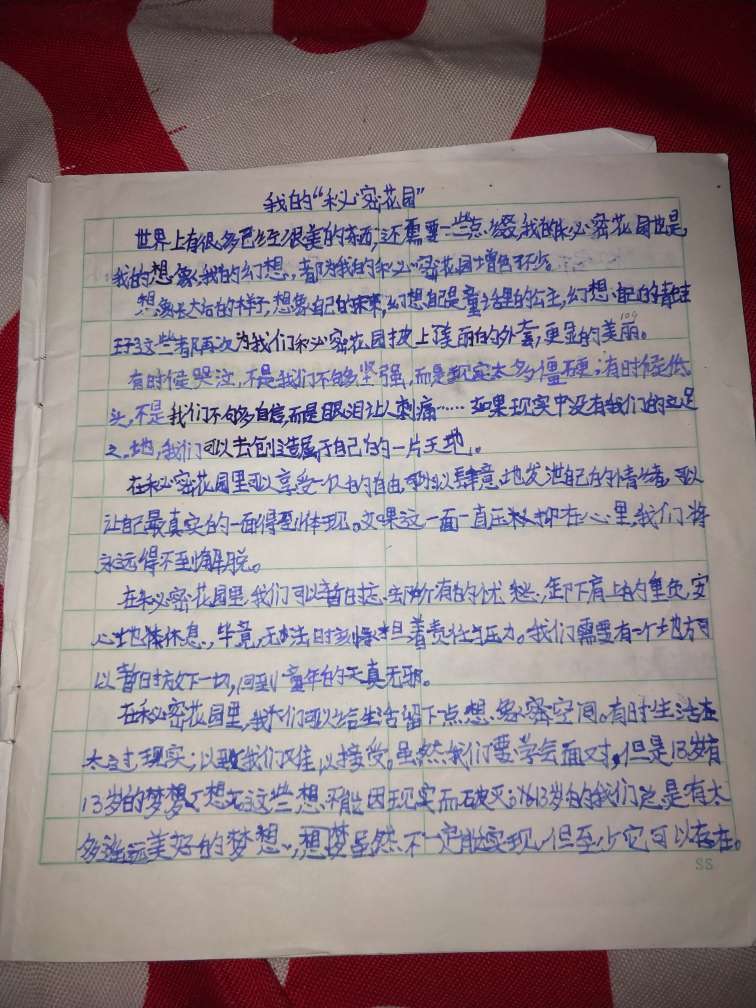 我的“秘密花园”
世界上有很多已经很美的东西,还需要一些点缀,我的秘密花园也是,
我的想象,我的幻想,都为我的秘密花园增色不少。
想象长大后的样子,想象自己的未来,幻想自己是童话里的公主,幻想自己的青蛙
王子这些都再次为我们秘密花园披上了美丽的外套,更显的美丽。
有时候哭泣,不是我们不够坚强,而是现实太多僵硬;有时候低
头,不是我们不够自信,而是眼泪让人刺痛……如果现实中没有我们的立足
之地,我们可以去创造属于自己的一片天地。
在秘密花园里可以享受一切的自由,可以肆意地发泄自己的情绪,可以
让自己最真实的一面得到体现。如果这一面一直压抑在心里,我们将
永远得不到解脱。
在秘密花园里,我们可以暂时忘却所有的忧愁,卸下肩上的重负,安
心地休息,毕竟,无法时刻承担着责任与压力。我们需要有一个地方可
以暂时放下一切,回到童年的天真无邪。
在秘密花园里,我们可以给生活留下点想象空间。有时生活
太过现实;以致我们难以接受。虽然我们要学会面对,但是13岁有
13岁的梦想,不想这些想不能因现实而破灭;13岁的我们总是有太
多遥远美好的梦想,想梦虽然不一定能实现,但至少它可以存在。
SS